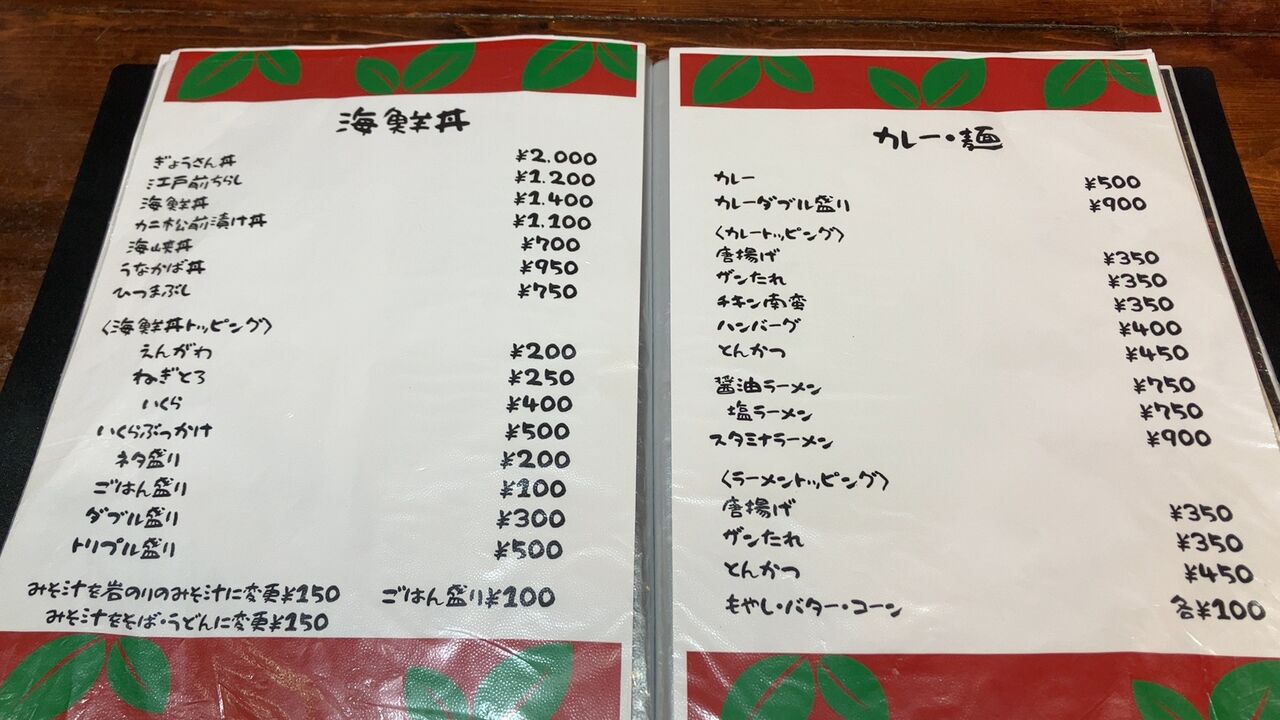 海鮮丼
ぎょうさん丼 ¥2.000
江戸前ちらし ¥1.200
海鮮丼 ¥1.400
カニ松前漬け丼 ¥1.100
海峡丼 ¥700
うなかば丼 ¥950
ひつまぶし ¥750
〈海鮮丼トッピング〉
えんがわ ¥200
ねぎとろ ¥250
いくら ¥400
いくらぶっかけ ¥500
ネタ盛り ¥200
ごはん盛り ¥100
ダブル盛り ¥300
トリプル盛り ¥500
みそ汁を岩のりのみそ汁に変更¥150 ごはん盛り¥100
みそ汁をそば・うどんに変更¥150
カレー・麺
カレー ¥500
カレーダブル盛り ¥900
〈カレートッピング〉
唐揚げ ¥350
ザンたれ ¥350
チキン南蛮 ¥350
ハンバーグ ¥400
とんかつ ¥450
醤油ラーメン ¥750
塩ラーメン ¥750
スタミナラーメン ¥900
〈ラーメントッピング〉
唐揚げ ¥350
ザンたれ ¥350
とんかつ ¥450
もやし・バター・コーン 各¥100